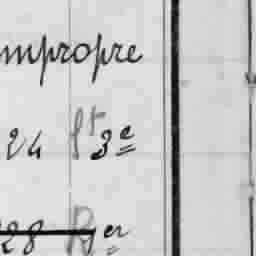 mpropre
24 St 3e
28 R er